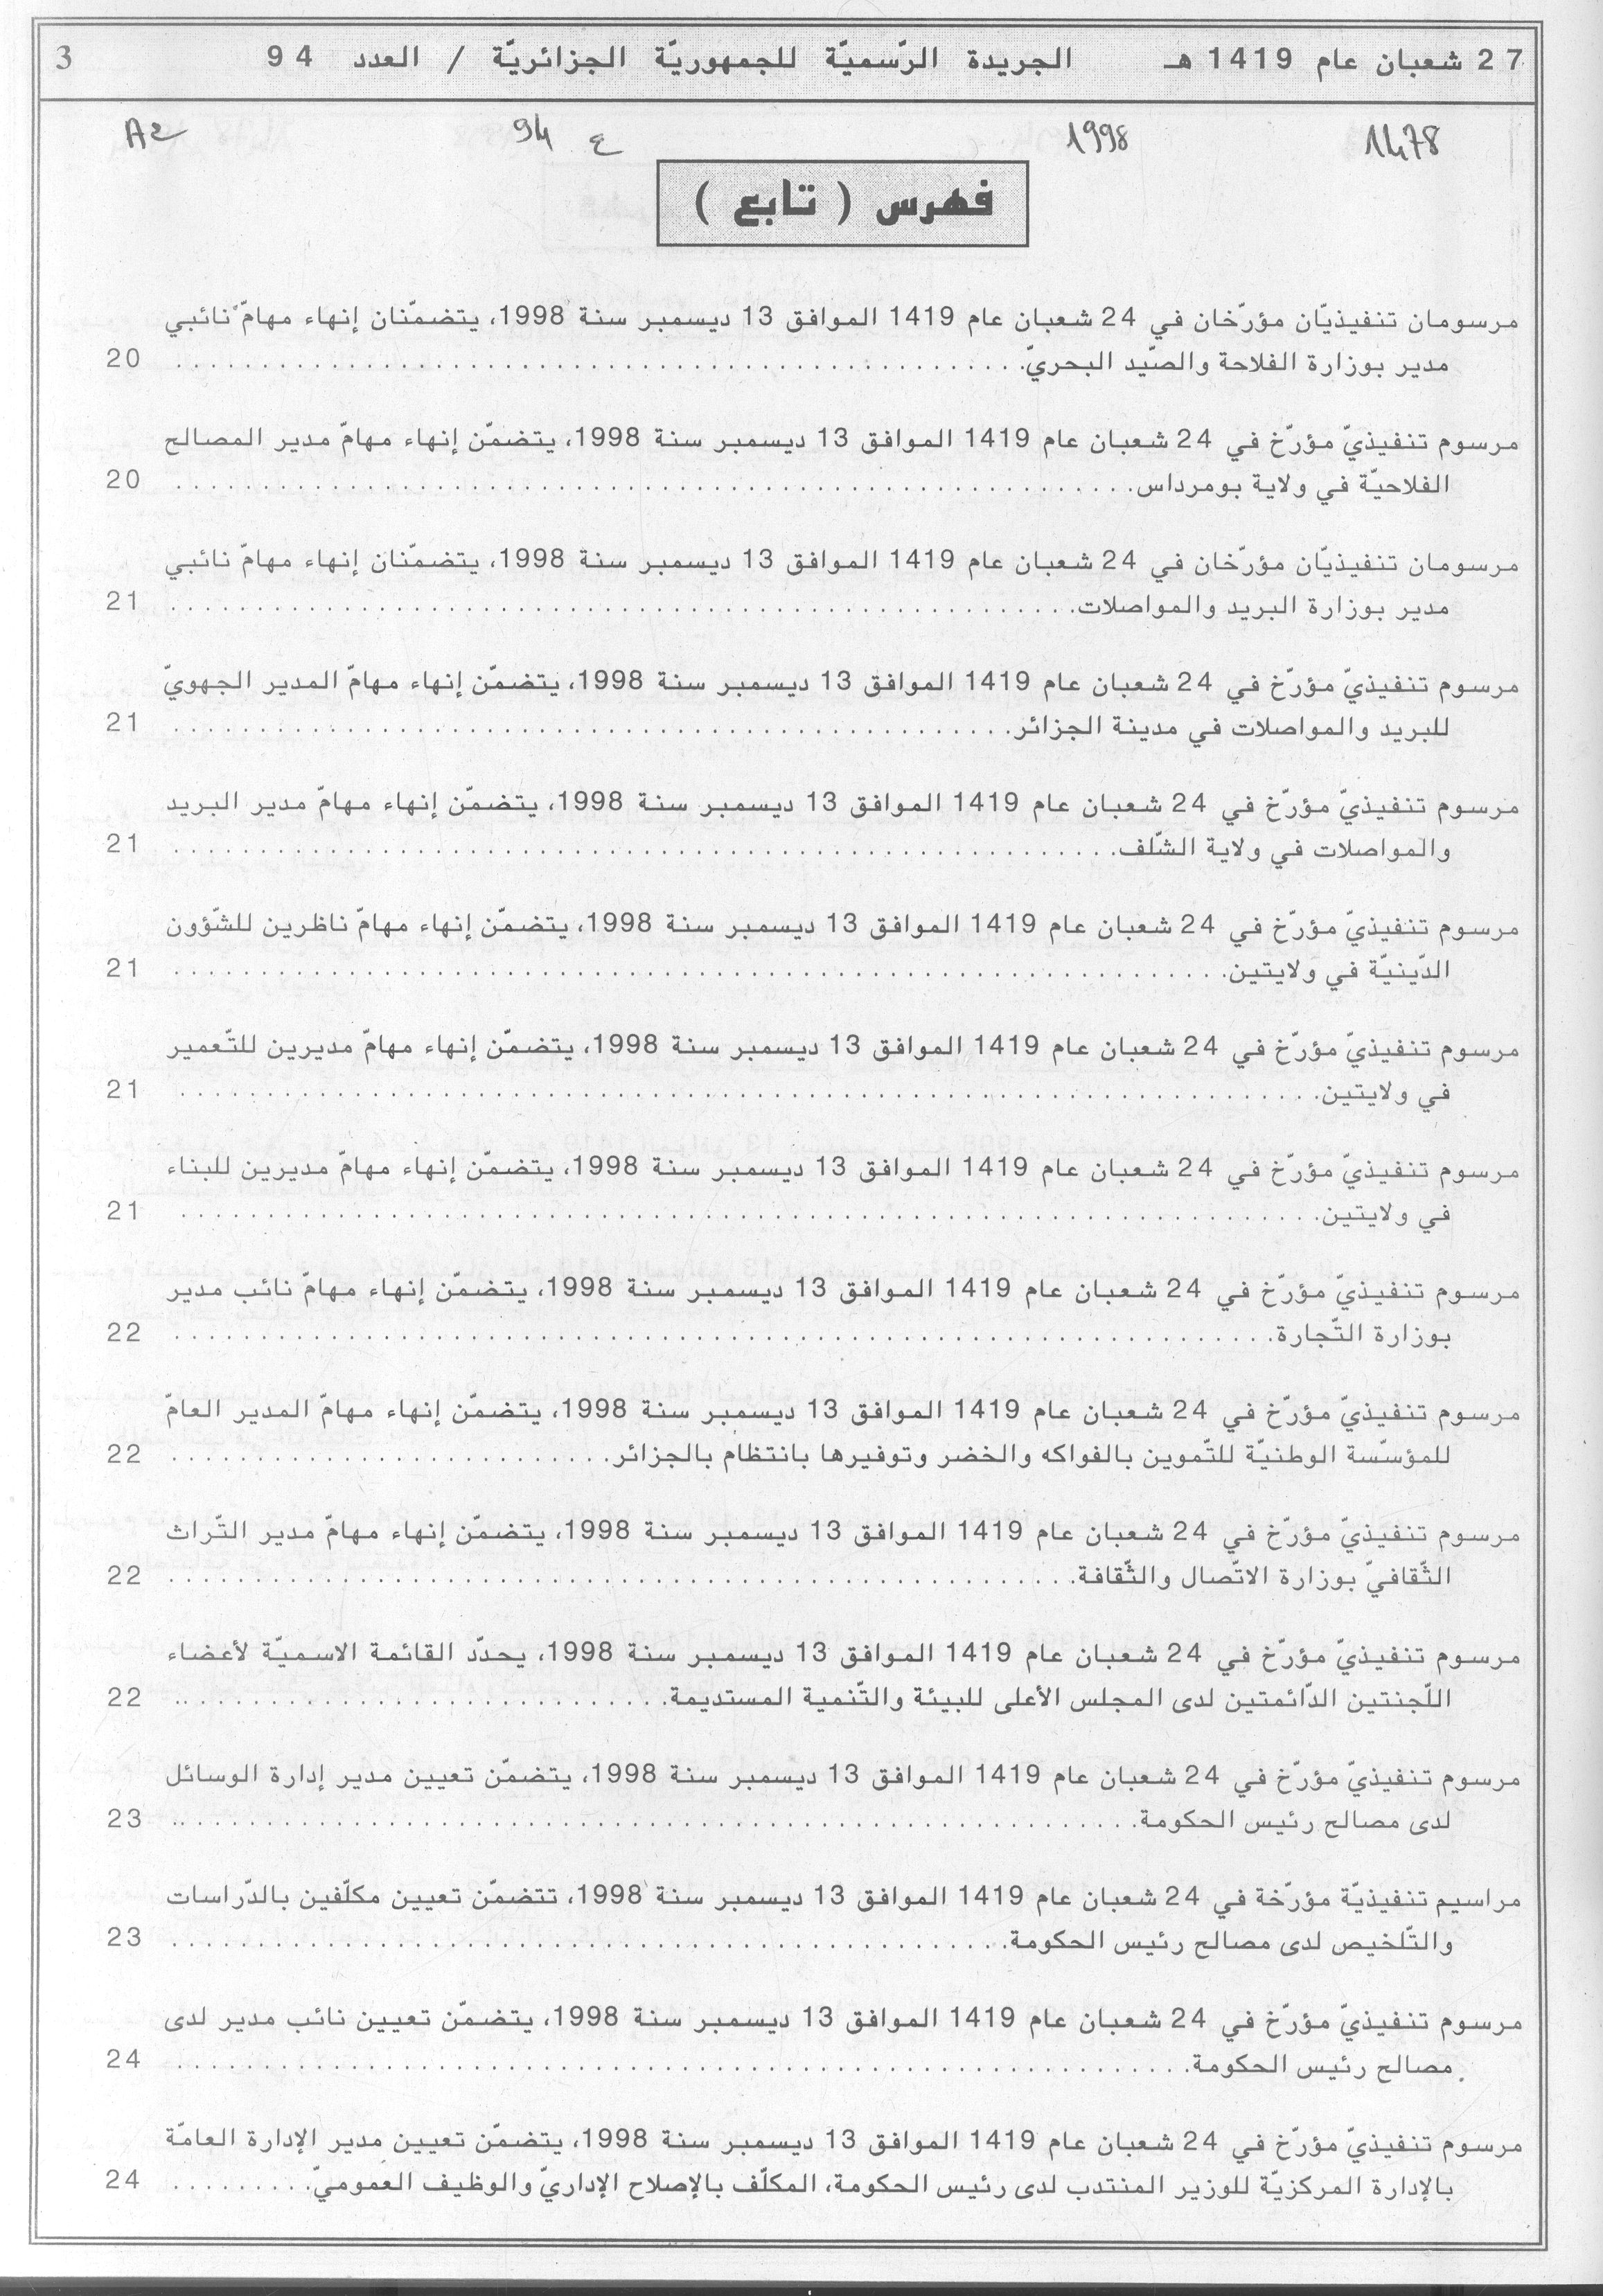 27 شعبان عام 1419 هـ الجريدة الرّسميّة للجمهوريّة الجزائريّة / العدد 94 3
1478 1998 ع 94 A2
فهرس ( تابع )
مرسومان تنفيذيّان مؤرّخان في 24 شعبان عام 1419 الموافق 13 ديسمبر سنة 1998، يتضمّنان إنهاء مهامّ نائبي
مدير بوزارة الفلاحة والصّيد البحريّ. 20
مرسوم تنفيذيّ مؤرّخ في 24 شعبان عام 1419 الموافق 13 ديسمبر سنة 1998، يتضمّن إنهاء مهامّ مدير المصالح
الفلاحيّة في ولاية بومرداس. 20
مرسومان تنفيذيّان مؤرّخان في 24 شعبان عام 1419 الموافق 13 ديسمبر سنة 1998، يتضمّنان إنهاء مهامّ نائبي
مدير بوزارة البريد والمواصلات. 21
مرسوم تنفيذيّ مؤرّخ في 24 شعبان عام 1419 الموافق 13 ديسمبر سنة 1998، يتضمّن إنهاء مهامّ المدير الجهويّ
للبريد والمواصلات في مدينة الجزائر. 21
مرسوم تنفيذيّ مؤرّخ في 24 شعبان عام 1419 الموافق 13 ديسمبر سنة 1998، يتضمّن إنهاء مهامّ مدير البريد
والمواصلات في ولاية الشّلف. 21
مرسوم تنفيذيّ مؤرّخ في 24 شعبان عام 1419 الموافق 13 ديسمبر سنة 1998، يتضمّن إنهاء مهامّ ناظرين للشّؤون
الدّينيّة في ولايتين. 21
مرسوم تنفيذيّ مؤرّخ في 24 شعبان عام 1419 الموافق 13 ديسمبر سنة 1998، يتضمّن إنهاء مهامّ مديرين للتّعمير
في ولايتين. 21
مرسوم تنفيذيّ مؤرّخ في 24 شعبان عام 1419 الموافق 13 ديسمبر سنة 1998، يتضمّن إنهاء مهامّ مديرين للبناء
في ولايتين. 21
مرسوم تنفيذيّ مؤرّخ في 24 شعبان عام 1419 الموافق 13 ديسمبر سنة 1998، يتضمّن إنهاء مهامّ نائب مدير
بوزارة التّجارة. 22
مرسوم تنفيذيّ مؤرّخ في 24 شعبان عام 1419 الموافق 13 ديسمبر سنة 1998، يتضمّن إنهاء مهامّ المدير العامّ
للمؤسّسة الوطنيّة للتّموين بالفواكه والخضر وتوفيرها بانتظام بالجزائر. 22
مرسوم تنفيذيّ مؤرّخ في 24 شعبان عام 1419 الموافق 13 ديسمبر سنة 1998، يتضمّن إنهاء مهامّ مدير التّراث
الثّقافيّ بوزارة الاتّصال والثّقافة. 22
مرسوم تنفيذيّ مؤرّخ في 24 شعبان عام 1419 الموافق 13 ديسمبر سنة 1998، يحدّد القائمة الاسميّة لأعضاء
اللّجنتين الدّائمتين لدى المجلس الأعلى للبيئة والتّنمية المستديمة. 22
مرسوم تنفيذيّ مؤرّخ في 24 شعبان عام 1419 الموافق 13 ديسمبر سنة 1998، يتضمّن تعيين مدير إدارة الوسائل
لدى مصالح رئيس الحكومة. 23
مراسيم تنفيذيّة مؤرّخة في 24 شعبان عام 1419 الموافق 13 ديسمبر سنة 1998، تتضمّن تعيين مكلّفين بالدّراسات
والتّلخيص لدى مصالح رئيس الحكومة. 23
مرسوم تنفيذيّ مؤرّخ في 24 شعبان عام 1419 الموافق 13 ديسمبر سنة 1998، يتضمّن تعيين نائب مدير لدى
مصالح رئيس الحكومة. 24
مرسوم تنفيذيّ مؤرّخ في 24 شعبان عام 1419 الموافق 13 ديسمبر سنة 1998، يتضمّن تعيين مدير الإدارة العامّة
بالإدارة المركزيّة للوزير المنتدب لدى رئيس الحكومة، المكلّف بالإصلاح الإداريّ والوظيف العموميّ. 24